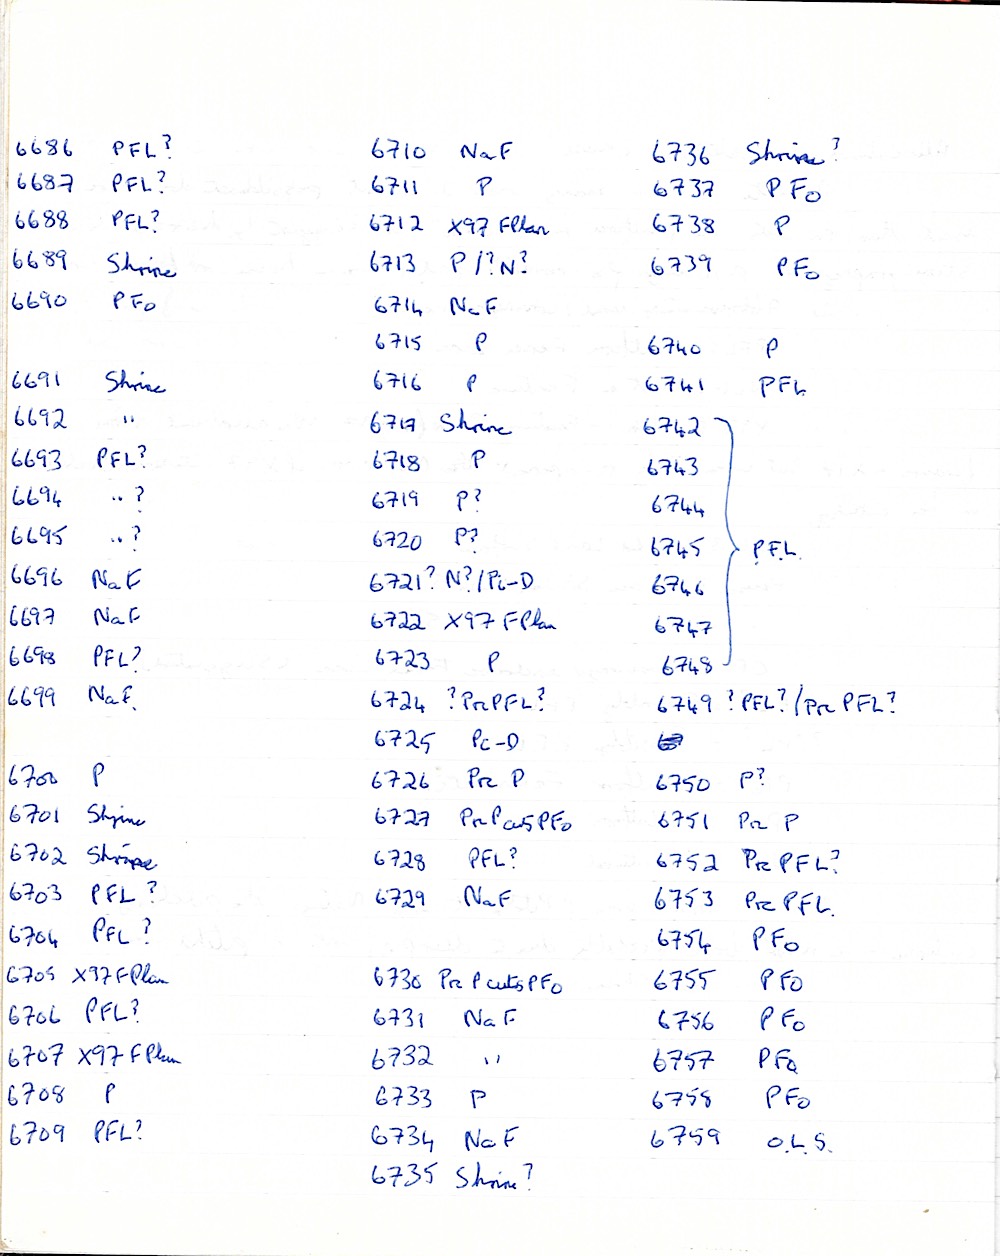 6686 PFL?
6687 PFL?
6688 PFL?
6689 Shrine
6690 PFo
6691 Shrine
6692 "
6693 PFL?
6694 " ?
6695 " ?
6696 NaF
6697 NaF
6698 PFL?
6699 NaF.
6700 P
6701 Shrine
6702 Shrine
6703 PFL ?
6704 PFL ?
6705 X97 FPlan
6706 PFL?
6707 X97 FPlan
6708 P
6709 PFL?
6710 NaF
6711 P
6712 X97 FPlan
6713 P/?N?
6714 NaF
6715 P
6716 P
6717 Shrine
6718 P
6719 P?
6720 P?
6721? N?/Pi-D
6722 X97 FPlan
6723 P
6724 ?PrePFL?
6725 Pi-D
6726 Pre P
6727 PrePcutsPFo
6728 PFL?
6729 NaF
6730 Pre P cuts PFo
6731 NaF
6732 "
6733 P
6734 NaF
6735 Shrine?
6736 Shrine?
6737 PFo
6738 P
6739 PFo
6740 P
6741 PFL
6742
6743
6744
6745 } PFL.
6746
6747
6748
6749 ?PFL?/Pre PFL?
6750 P?
6751 Pre P
6752 Pre PFL?
6753 Pre PFL.
6754 PFo
6755 PFo
6756 PFo
6757 PFo
6758 PFo
6759 O.L.S.